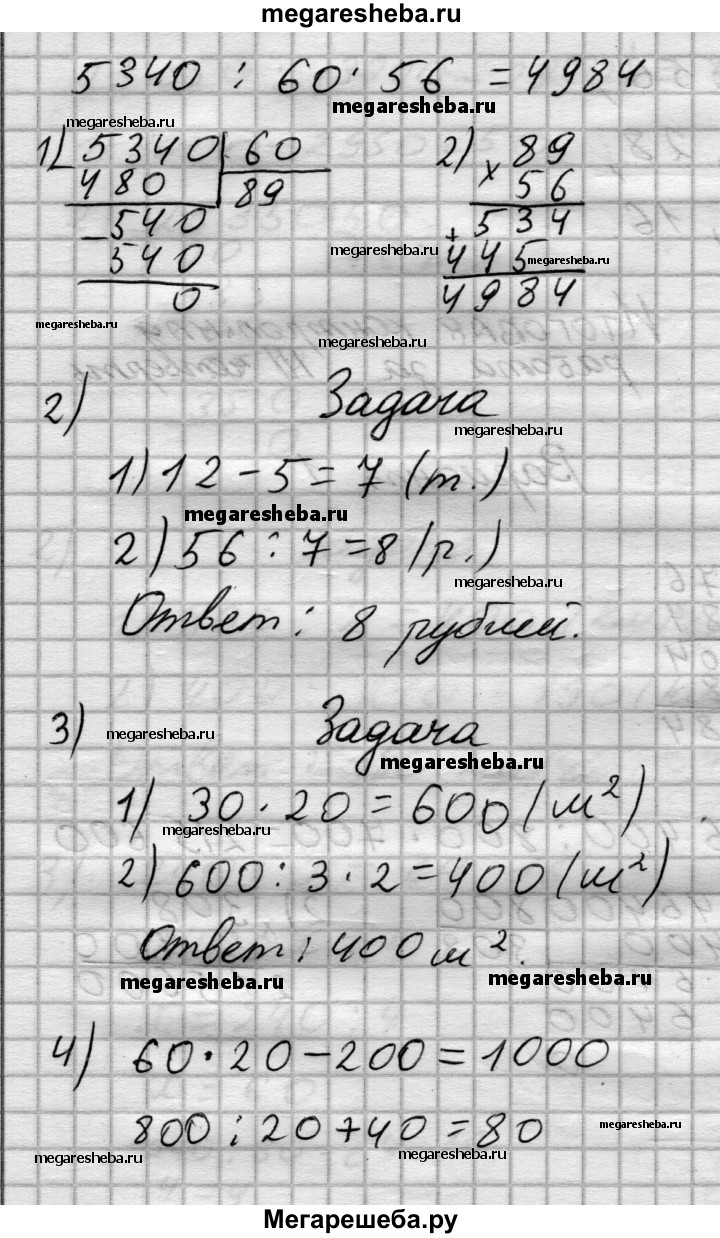 megaresheba.ru
5340 : 60 · 56 = 4984
megaresheba.ru
megaresheba.ru
1) 5340 | 60 2) 89
480 89 × 56
- 540 + 534
megaresheba.ru
540 445
megaresheba.ru
0 4984
megaresheba.ru
megaresheba.ru
2) Задача
megaresheba.ru
1) 12 - 5 = 7 (т.)
megaresheba.ru
2) 56 : 7 = 8 (р.)
megaresheba.ru
Ответ: 8 рублей.
3) Задача
megaresheba.ru
megaresheba.ru
1) 30 · 20 = 600 (м²)
megaresheba.ru
2) 600 : 3 · 2 = 400 (м²)
Ответ: 400 м².
megaresheba.ru
megaresheba.ru
4) 60 · 20 - 200 = 1000
800 : 20 + 40 = 80
megaresheba.ru
megaresheba.ru
megaresheba.ru
Мегарешеба.ру